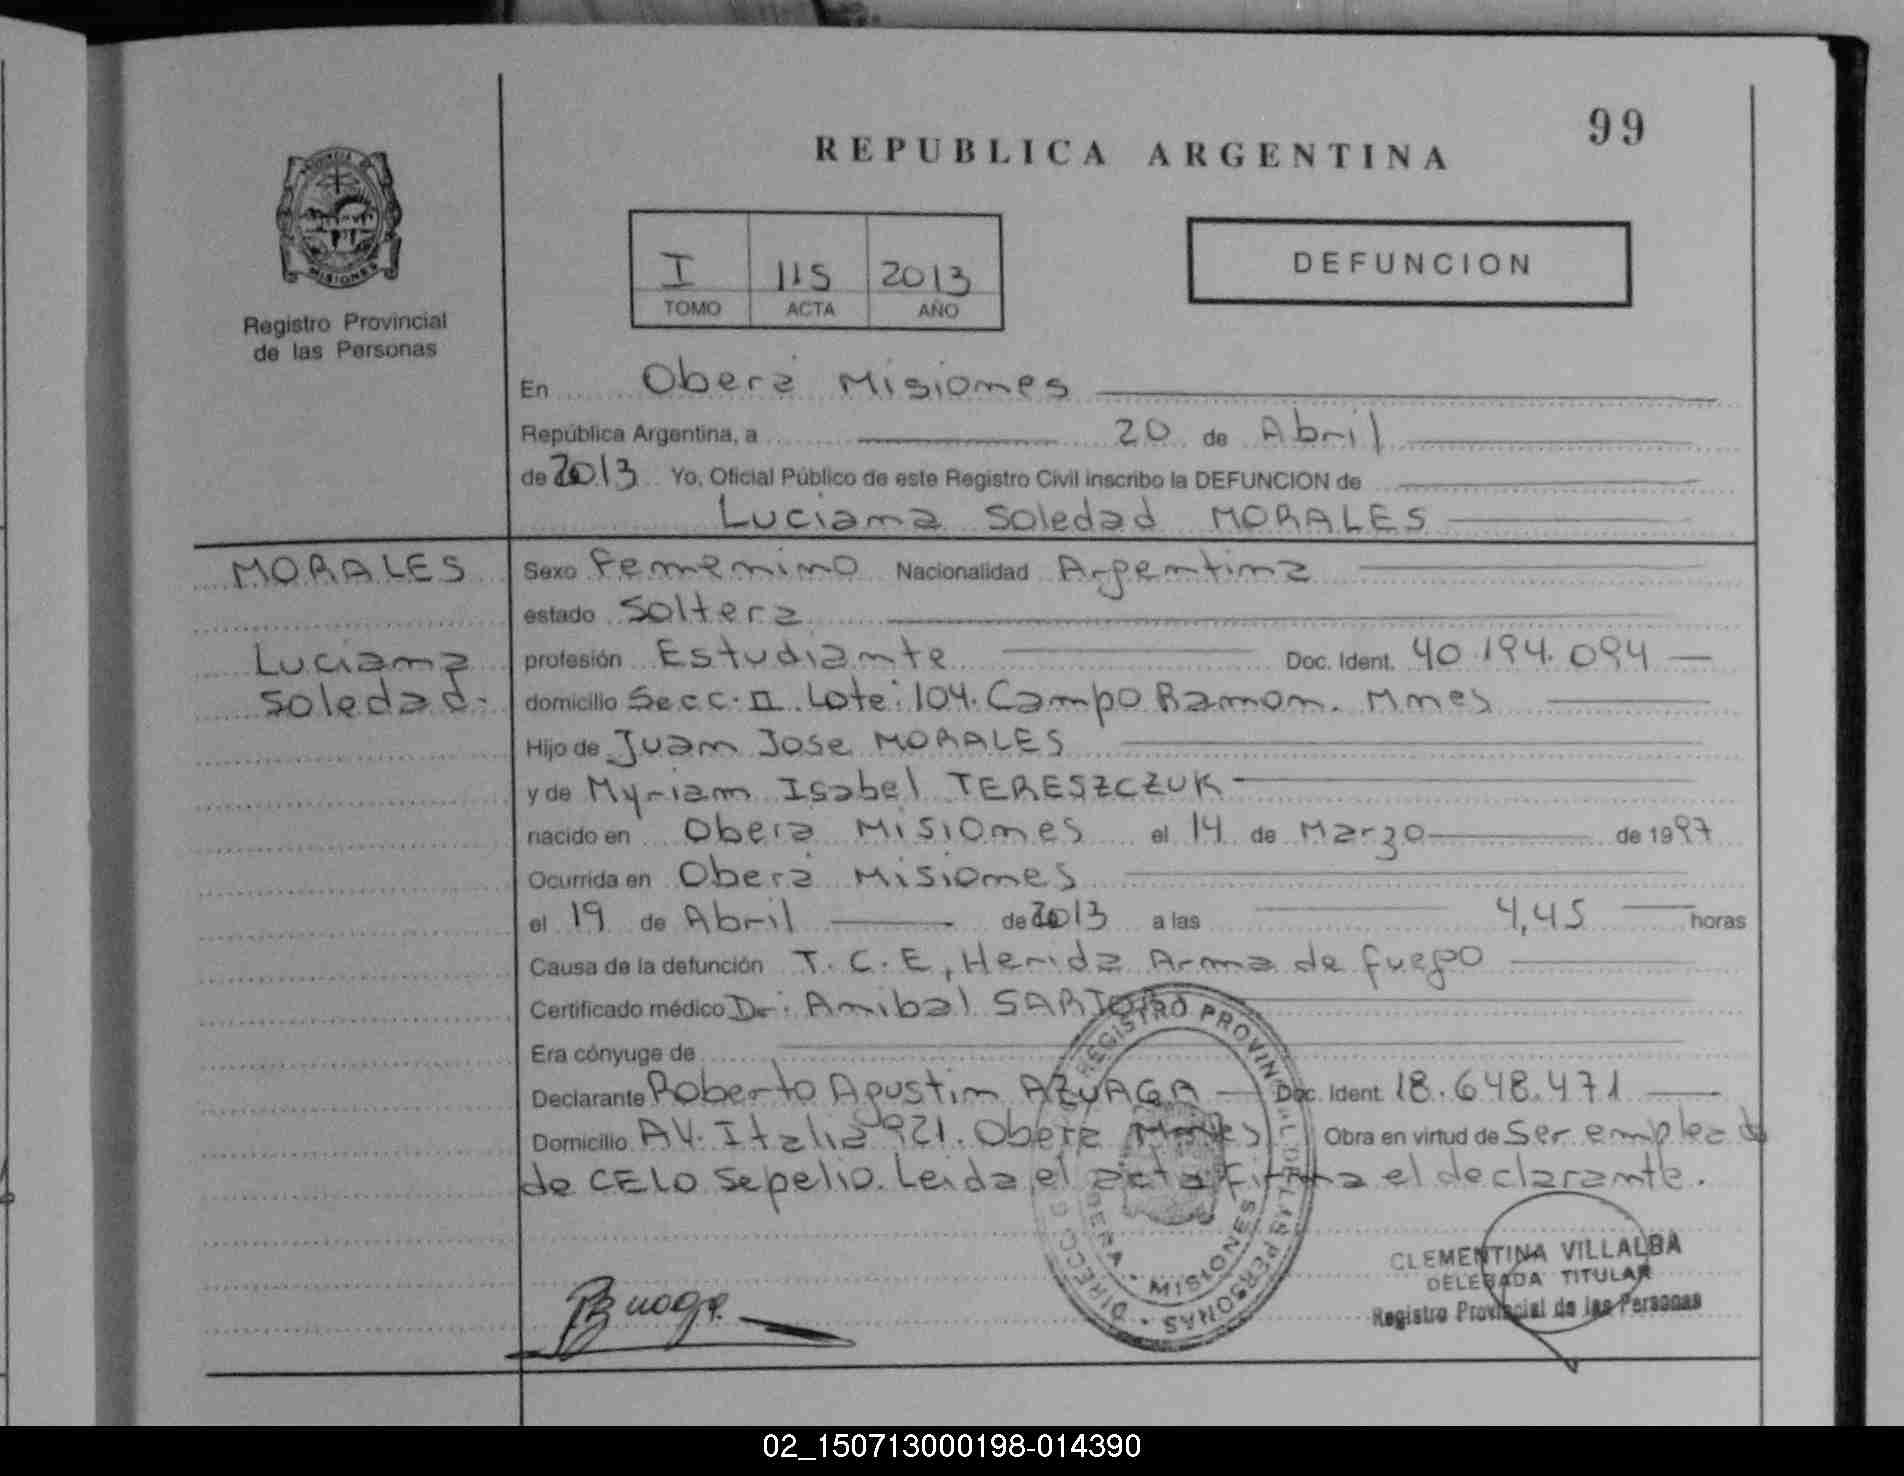 99
REPUBLICA ARGENTINA
MISIONES
Registro Provincial
de las Personas
I 115 2013
TOMO ACTA AÑO
DEFUNCION
En Oberá Misiones
República Argentina, a 20 de Abril
de 2013 Yo, Oficial Público de este Registro Civil inscribo la DEFUNCION de
Luciana Soledad MORALES
MORALES
Luciana
Soledad.
Sexo Femenino Nacionalidad Argentina
estado Soltera
profesión Estudiante Doc. Ident. 40.194.094
domicilio Secc. II. Lote: 104. Campo Ramon. Mnes
Hijo de Juan Jose MORALES
y de Myriam Isabel TERESZCZUK
nacido en Oberá Misiones el 14 de Marzo de 1997
Ocurrida en Oberá Misiones
el 19 de Abril de 2013 a las 4,45 horas
Causa de la defunción T.C.E, Herida Arma de fuego
Certificado médico Dr: Anibal
Era cónyuge de
Declarante Roberto Agustin AZUAGA Doc. Ident. 18.648.471
Domicilio AV. Italia 921. Oberá Mnes Obra en virtud de Ser empleado
de CELO Sepelio. Leida el acta firma el declarante.
REGISTRO PROVINCIAL DE LAS PERSONAS
MISIONES
CLEMENTINA VILLALBA
DELEGADA TITULAR
Registro Provincial de las Personas
02_150713000198-014390